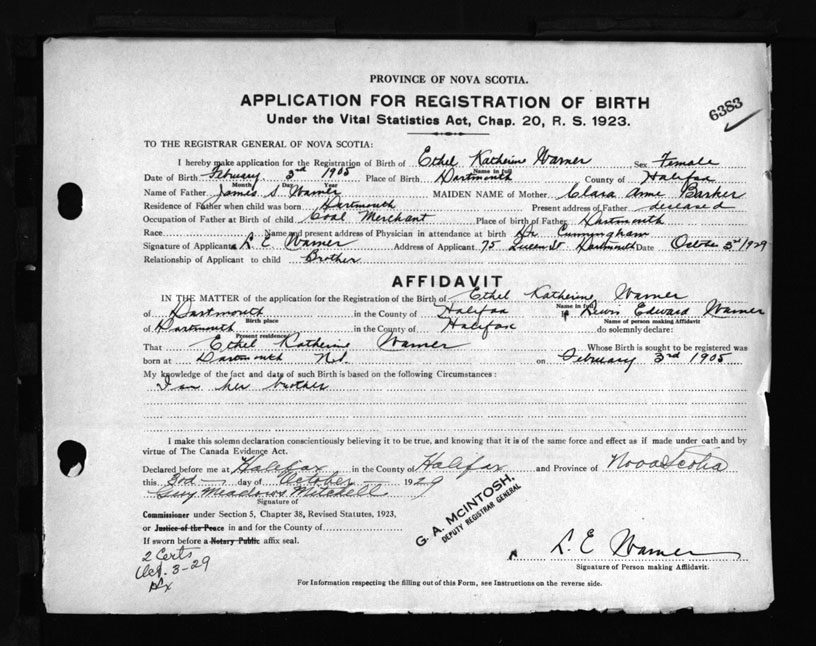 PROVINCE OF NOVA SCOTIA.
APPLICATION FOR REGISTRATION OF BIRTH
Under the Vital Statistics Act, Chap. 20, R. S. 1923.
6383
TO THE REGISTRAR GENERAL OF NOVA SCOTIA:
I hereby make application for the Registration of Birth of Ethel Katherine Warner Sex Female
Name in full
Date of Birth February 3rd 1905 Place of Birth Dartmouth County of Halifax
Month Day Year
Name of Father James S. Warner MAIDEN NAME of Mother Clara Anne Barker
Residence of Father when child was born Dartmouth Present address of Father deceased
Occupation of Father at Birth of child Coal Merchant Place of birth of Father Dartmouth
Race Name and present address of Physician in attendance at birth Dr. Cunningham
Signature of Applicant L. E. Warner Address of Applicant 75 Queen St Dartmouth Date October 3rd 1929
Relationship of Applicant to child Brother
AFFIDAVIT
IN THE MATTER of the application for the Registration of the Birth of Ethel Katherine Warner
Name in full
of Dartmouth in the County of Halifax I Lewis Edward Warner
Birth place Name of person making Affidavit
of Dartmouth in the County of Halifax do solemnly declare:
Present residence
That Ethel Katherine Warner Whose Birth is sought to be registered was
born at Dartmouth N.S. on February 3rd 1905
My knowledge of the fact and date of such Birth is based on the following Circumstances:
I am her brother
I make this solemn declaration conscientiously believing it to be true, and knowing that it is of the same force and effect as if made under oath and by
virtue of The Canada Evidence Act.
Declared before me at Halifax in the County of Halifax and Province of Nova Scotia
this 3rd day of October 1929
Guy Meadows Mitchell
Signature of
Commissioner under Section 5, Chapter 38, Revised Statutes, 1923,
or Justice of the Peace in and for the County of
If sworn before a Notary Public affix seal.
G. A. McINTOSH,
DEPUTY REGISTRAR GENERAL
L. E Warner
Signature of Person making Affidavit.
2 Certs
Oct. 3-29
For Information respecting the filling out of this Form, see Instructions on the reverse side.